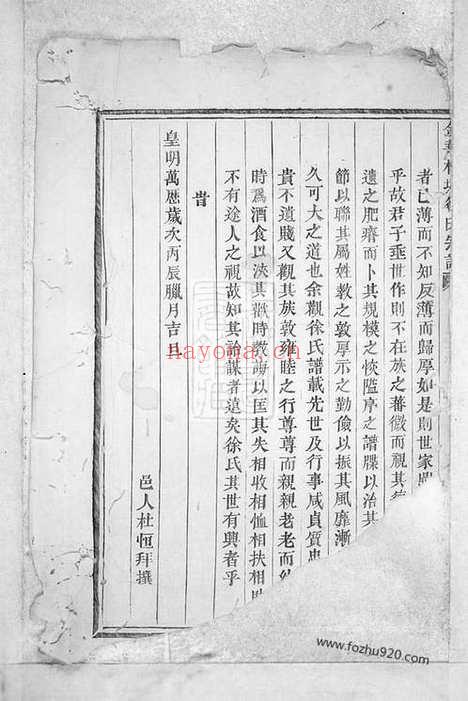 徐氏宗譜
者已薄而不知反薄而歸厚如是則世家
乎故君子垂世作則不在族之蕃微而視其
遺之肥瘠而卜其規模之恢隘序之譜牒以治其
節以聯其屬姓教之敦厚示之勤儉以振其風靡漸
久可大之道也余觀徐氏譜載先世及行事咸貞質忠
貴不遺賤又觀其族敦雍睦之行尊尊而親親老老而幼
時爲酒食以浹其歡時教誨以匡其失相收相恤相扶相
不有途人之視故知其詒謀者遠矣徐氏其世有興者乎
昔
皇明萬歷歲次丙辰臘月吉旦
邑人杜恒拜撰
nayona.cn
www.fozhu920.com